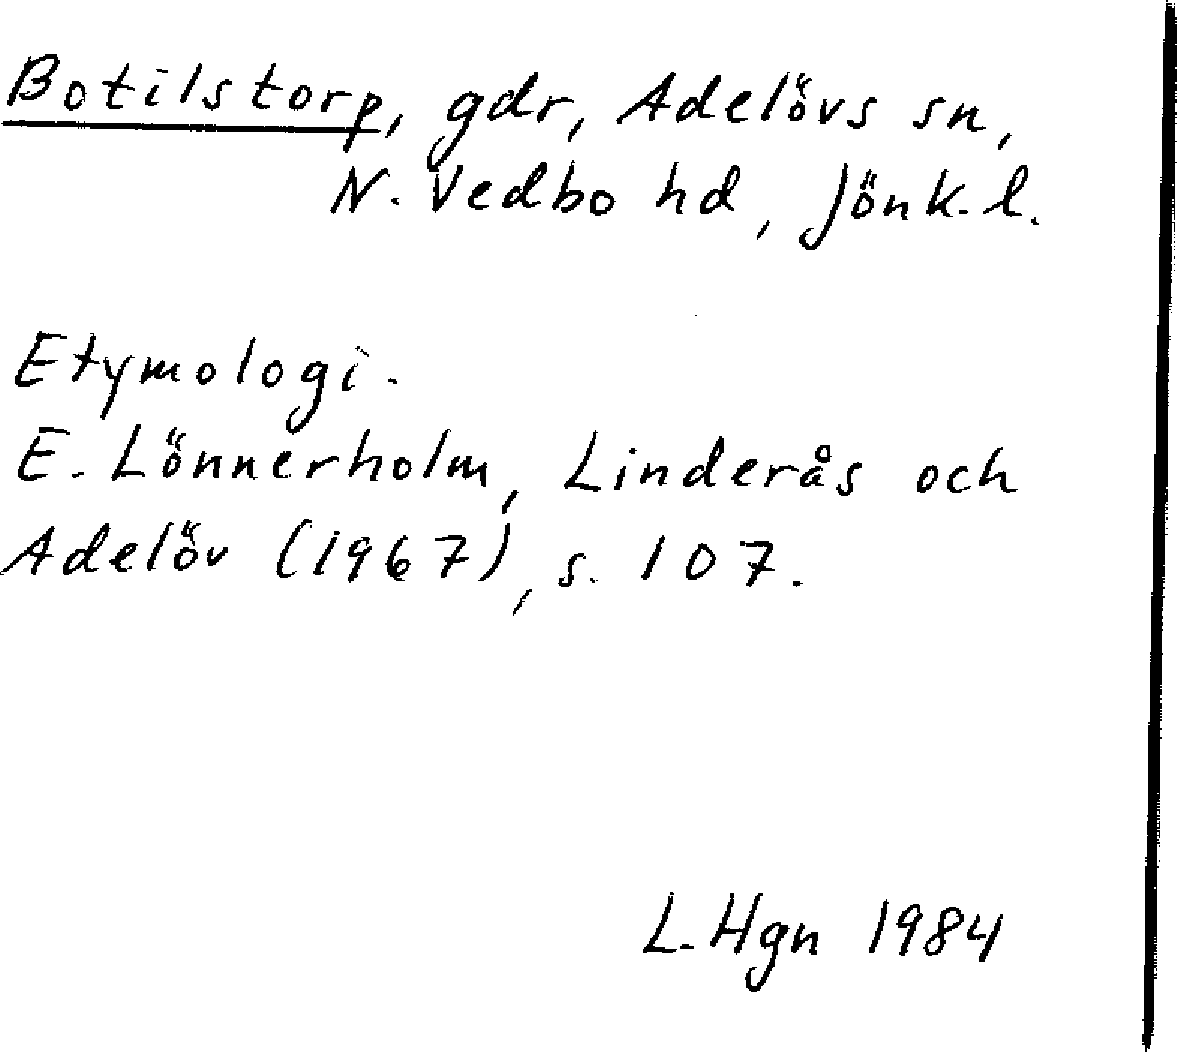 Botilstorp, gdr, Adelövs sn,
N. Vedbo hd, Jönk. l.
Etymologi.
E. Lönnerholm, Linderås och
Adelöv (1967), s. 107.
L. Hgn 1984